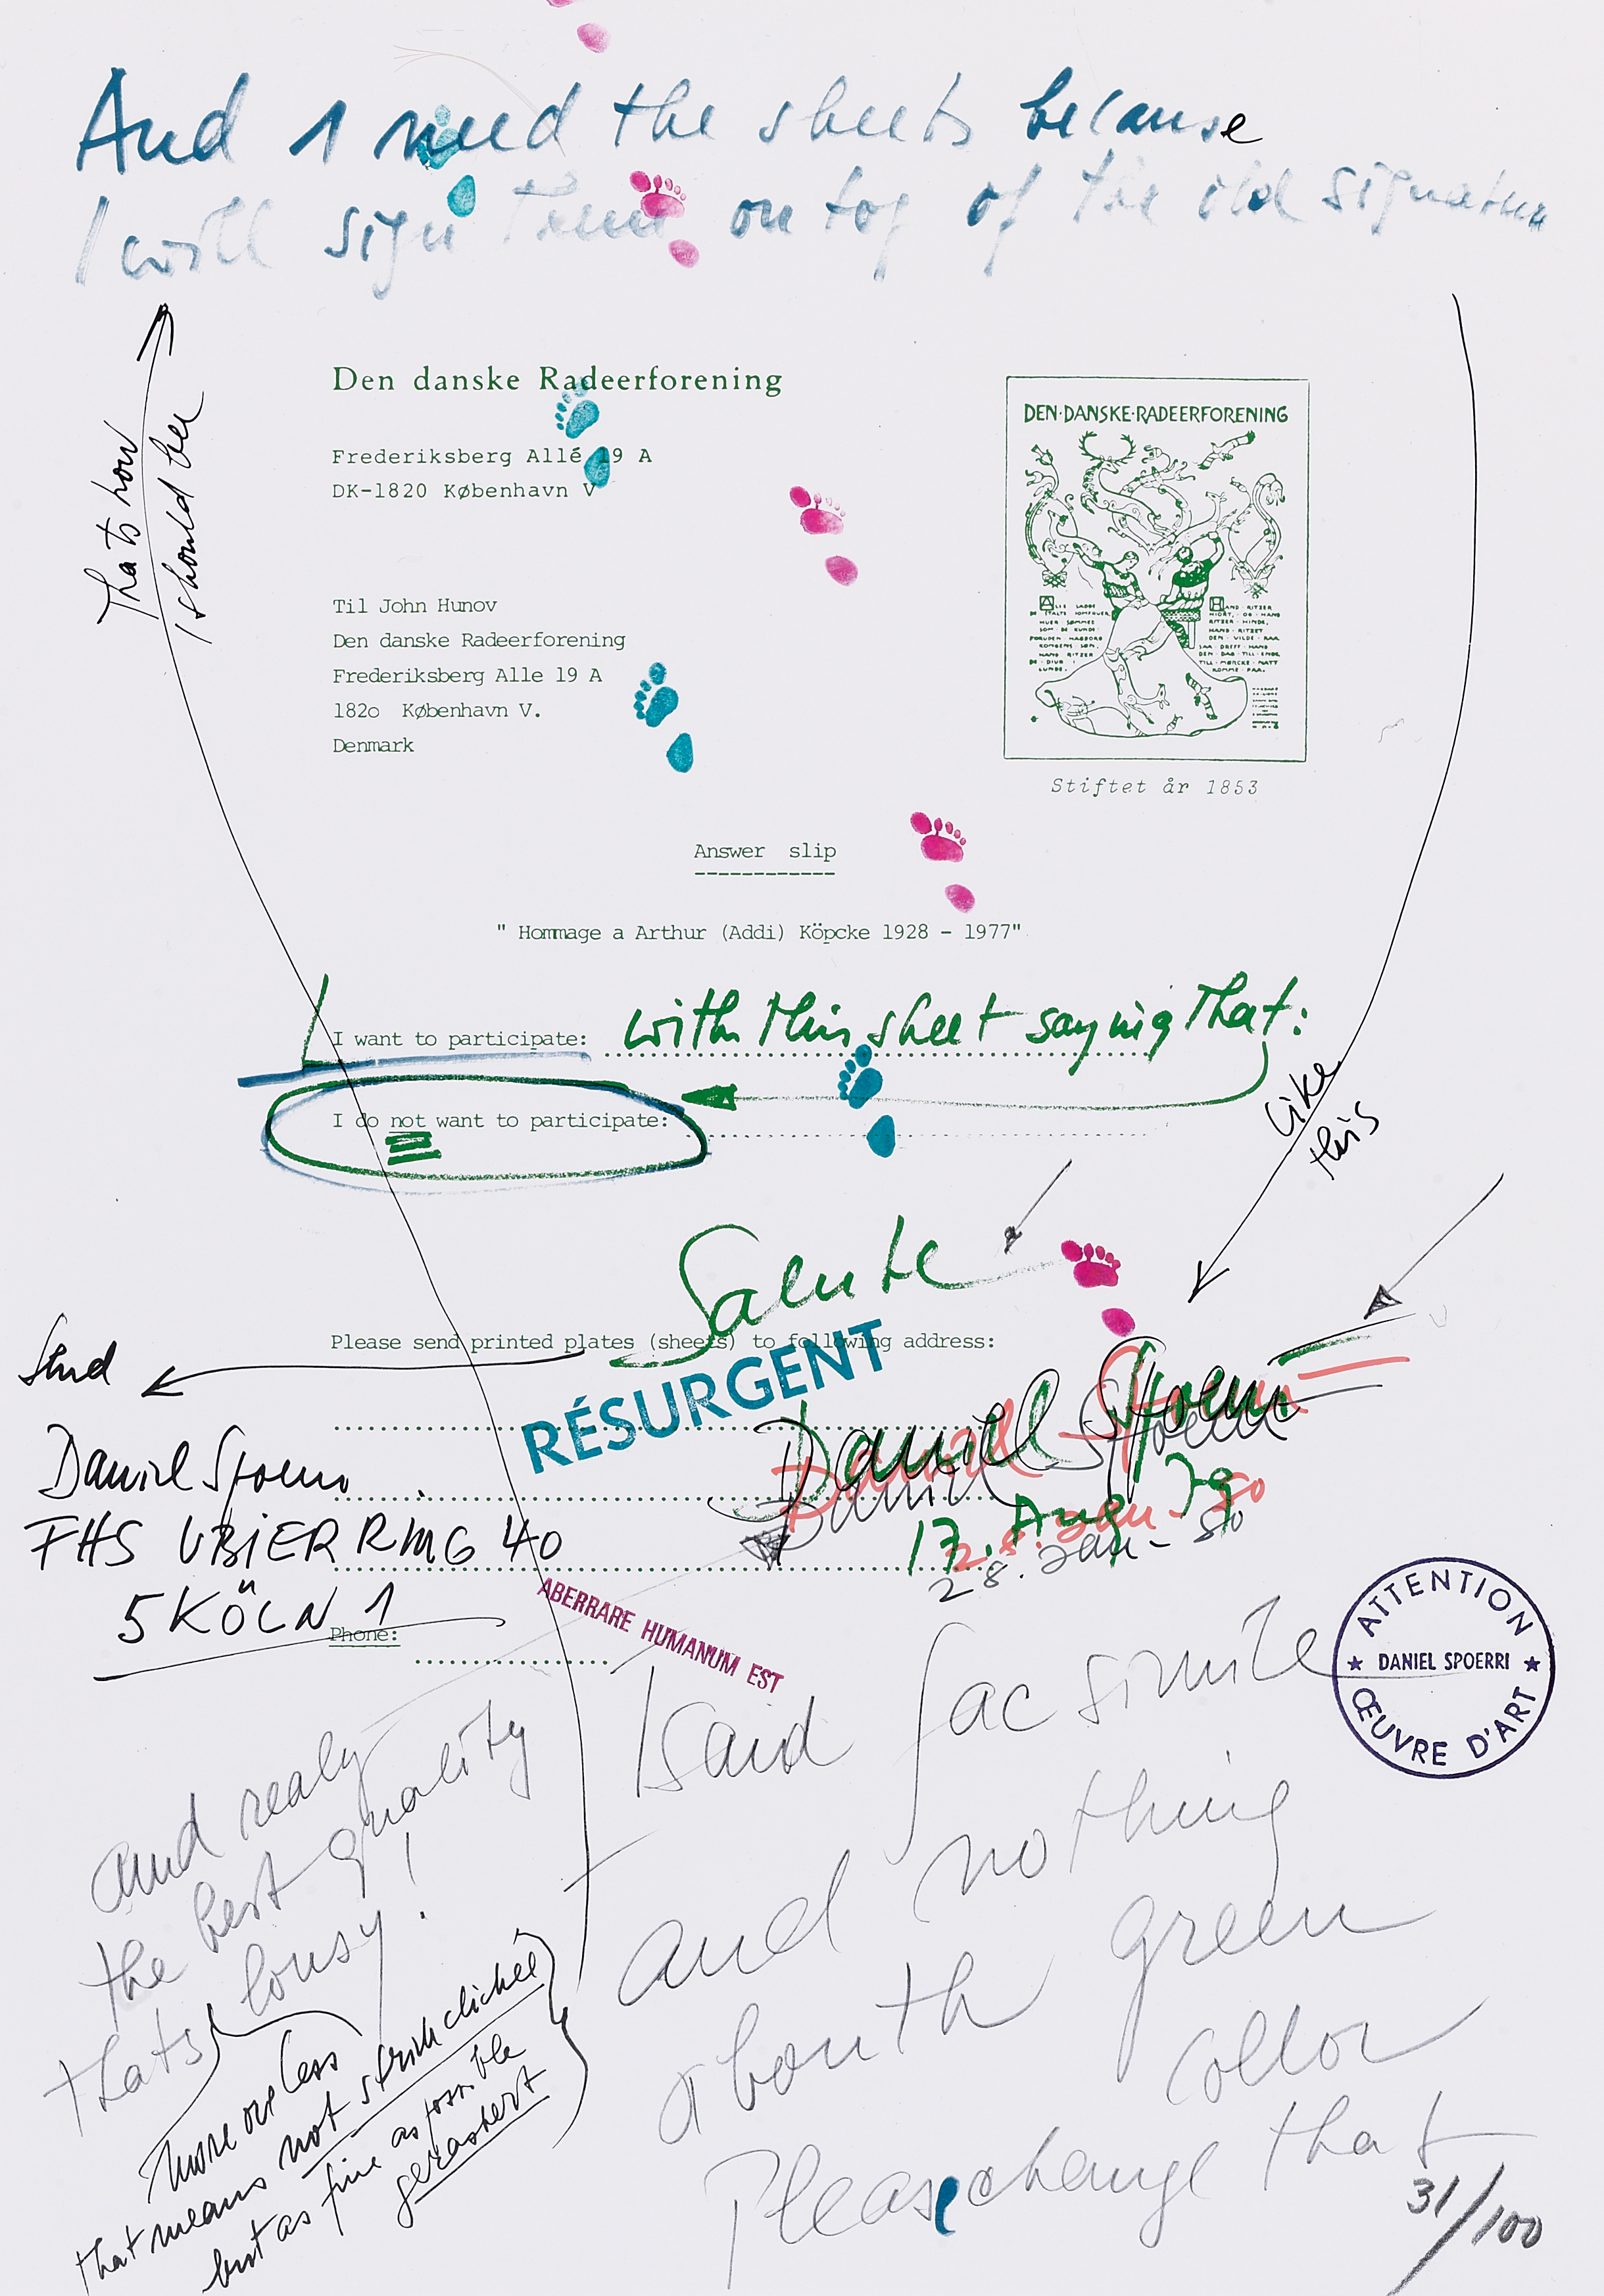 And I need the sheets because
I will sign them on top of the old signature
Thats how
I should bee
Den danske Radeerforening
Frederiksberg Allé 19 A
DK-1820 København V
DEN·DANSKE·RADEERFORENING
Stiftet år 1853
Til John Hunov
Den danske Radeerforening
Frederiksberg Alle 19 A
182o København V.
Denmark
Answer slip
" Hommage a Arthur (Addi) Köpcke 1928 - 1977"
I want to participate: with this sheet saying that:
I do not want to participate:
like
this
Salute
Please send printed plates (sheets) to following address:
Send
RÉSURGENT
Daniel Spoerri
17. Aug 79
28. Jan - 80
28. Jan - 80
Daniel Spoerri
FHS UBIERRING 40
5 KÖLN 1
Phone:
ABERRARE HUMANUM EST
ATTENTION
★ DANIEL SPOERRI ★
ŒUVRE D'ART
I said facsimile
and nothing
abouth green
collor
Please change that
and realy
the best quality
thats lousy!
more ore less
that means not strichclichée
but as fine as possible
gerastert
31/100